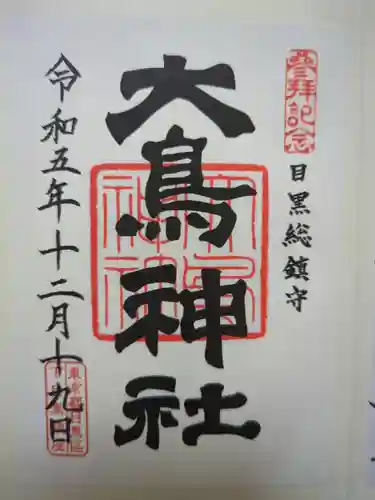 参拝記念
目黒総鎮守
大鳥神社
令和五年十二月十九日